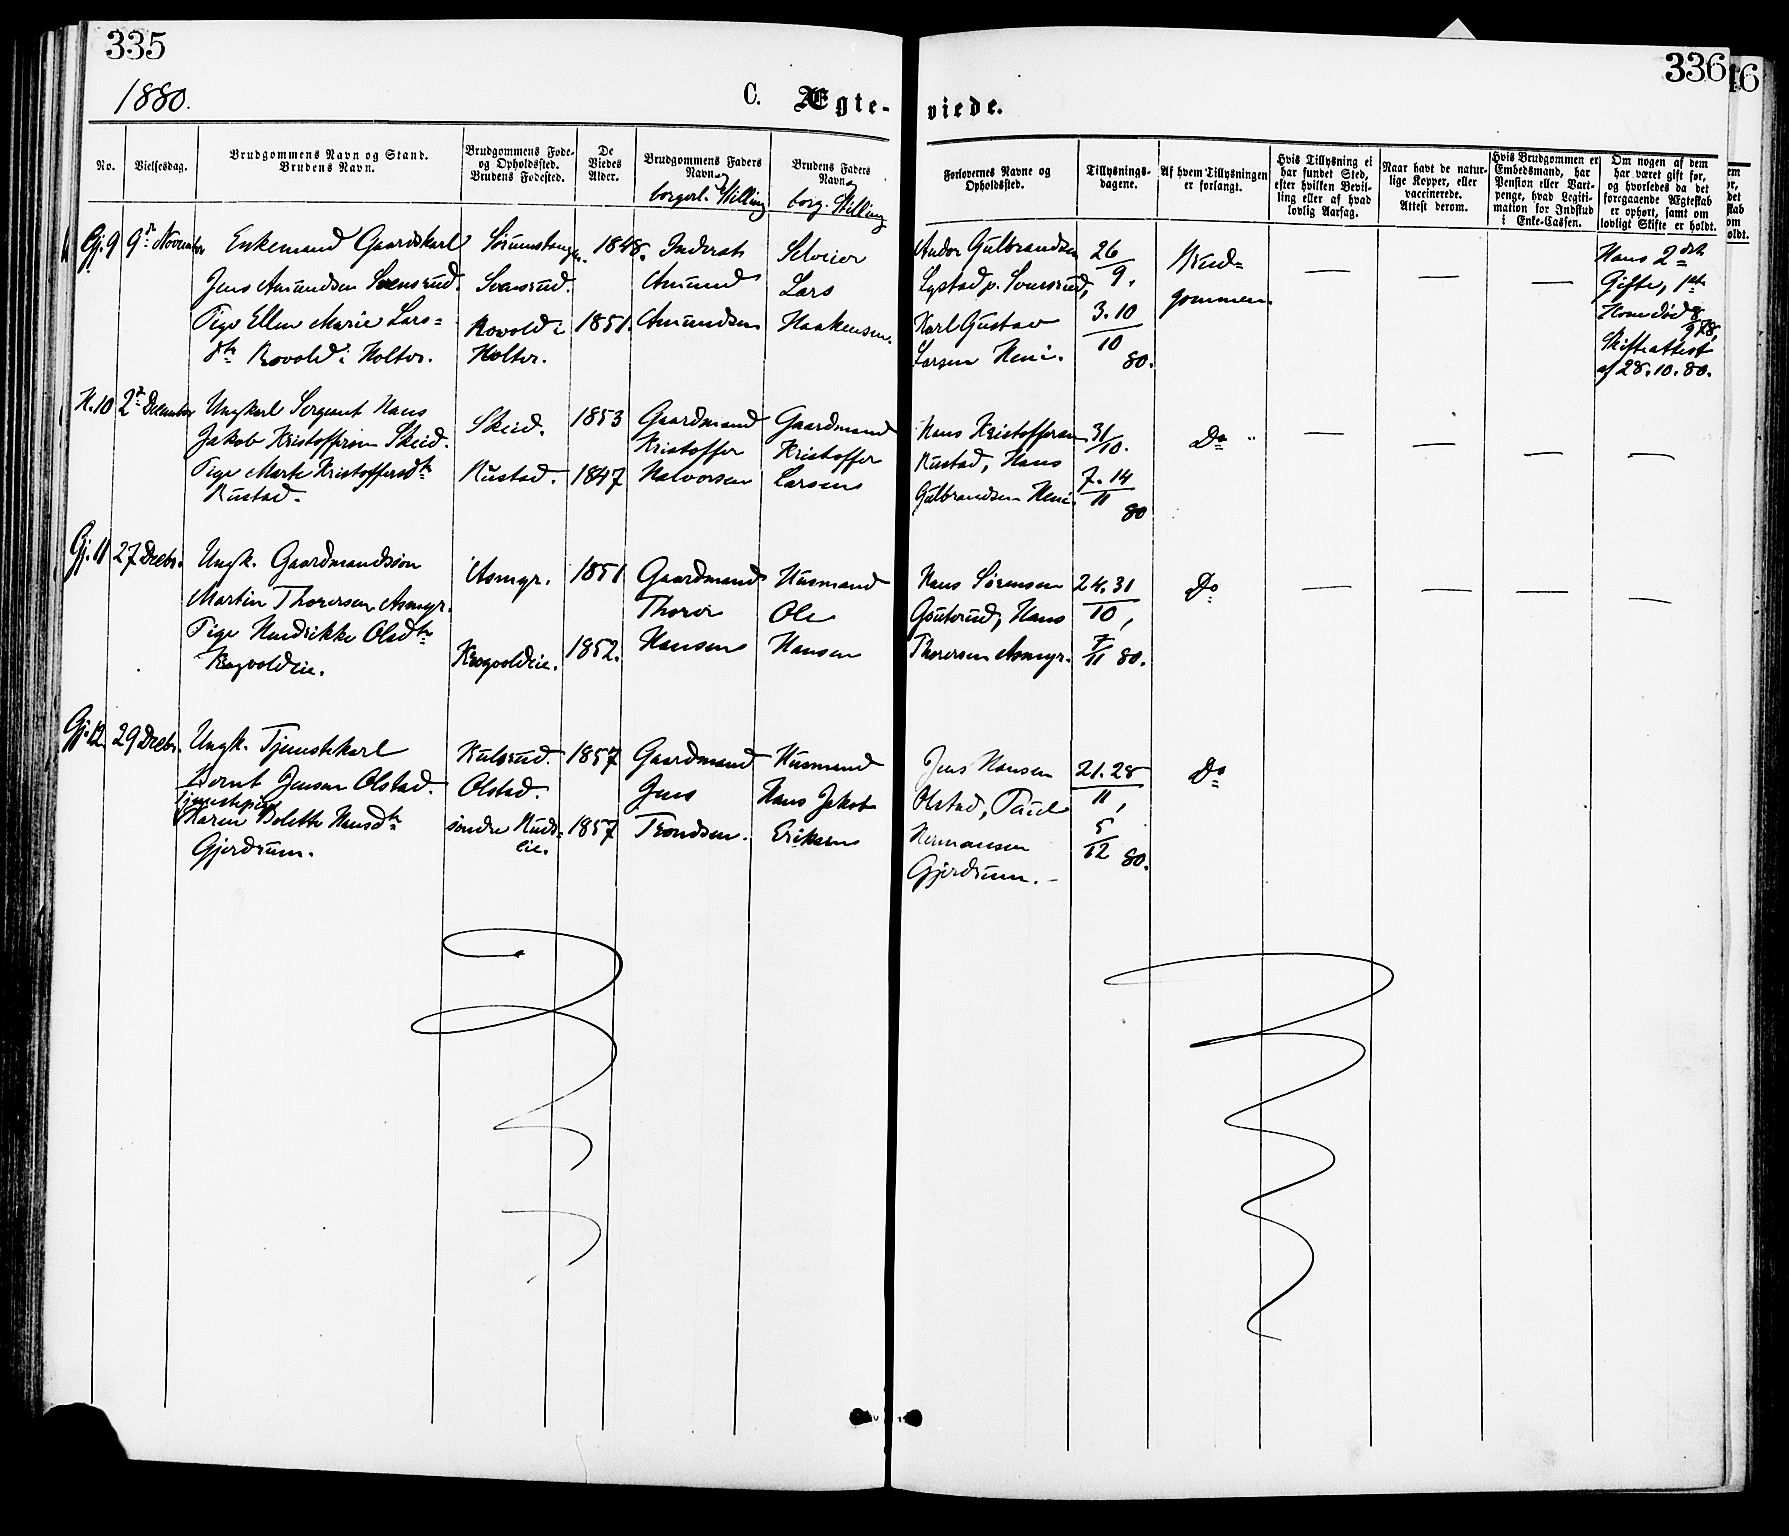 335
336
16
1880.
C. Ægte-
viede.
No.
Vielsesdag.
Brudgommens Navn og Stand.
Brudens Navn.
Brudgommens Føde-
og Opholdssted.
Brudens Fødested.
De
Viedes
Alder.
Brudgommens Faders
Navn
borgerl. Stilling
Brudens Faders
Navn
borg. Stilling
Forlovernes Navne og
Opholdssted.
Tillysnings-
dagene.
Af hvem Tillysningen
er forlangt.
Hvis Tillysning ei
har fundet Sted,
efter hvilken Bevil-
ling eller af hvad
lovlig Aarsag.
Naar havt de natur-
lige Kopper, eller
vaccinerede.
Attest derom.
Hvis Brudgommen er
Embedsmand, har
Pension eller Vart-
penge, hvad Legiti-
mation for Indskud
i Enke-Cassen.
Om nogen af dem
har været gift før,
og hvorledes da det
foregaaende Ægteskab
er ophørt, samt om
lovligt Skifte er holdt.
Gj. 9
9de November
Enkemand Gaardskarl
Jens Amundsen Svensrud.
Pige Ellen Marie Lars=
dtr Rovold i Holter.
Svensrud.
Rovold i
Holter.
1848.
1851.
Inderst
Amund
Amundsen
Selveier
Lars
Haakensen.
Andor Gulbrandsen
Lystad p. Svensrud,
Karl Gustav
Larsen Heni.
26
9,
3. 10
10
80.
Brud=
gommen.
Hans 2det
Gifte, 1ste
Kone død 8/9 78,
Skifteattest
af 28. 10. 80.
H. 10
2den December
Ungkarl Sergeant Hans
Jakob Kristoffersen Skeid.
Pige Marte Kristoffersdtr
Rustad.
Skeid.
Rustad.
1853
1847
Gaardmand
Kristoffer
Halvorsen
Gaardmand
Kristoffer
Larsen
Hans Kristoffersen
Rustad, Hans
Gulbrandsen Heni.
31
10.
7. 14
11
80
Do "
Gj. 11
27 Decbr.
Ungk. Gaardmandssøn
Martin Thorersen Asmyr.
Pige Hendrikke Olsdtr
Krogvoldeie.
Asmyr.
Krogvoldeie.
1851
1852.
Gaardmand
Thorer
Hansen
Husmand
Ole
Hansen
Hans Sørensen
Gouterud, Hans
Thorersen Asmyr.
24. 31
10,
7
11 80.
Do
Gj. 12.
29 Decbr.
Ungk. Tjenestekarl
Bernt Jensen Olstad.
Tjenestepige
Karen Bolette Hansdtr
Gjerdrum.
Kulsrud.
Olstad.
søndre Huds=
eie.
1857
1857
Gaardmand
Jens
Trondsen.
Husmand
Hans Jakob
Eriksen
Jens Hansen
Olstad, Paul
Hermansen
Gjerdrum.
21. 28
11,
5
12 80.
Do